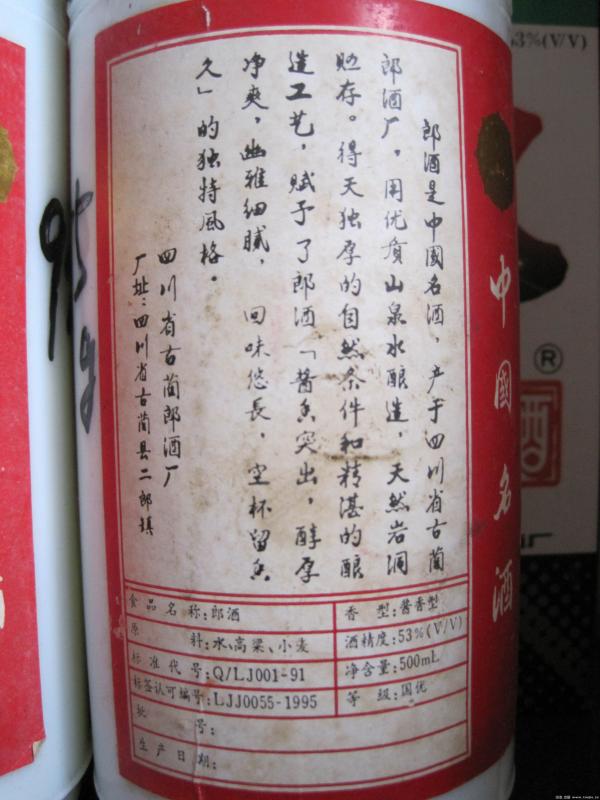 郎酒是中國名酒，产于四川省古蔺
郎酒厂，用优质山泉水酿造，天然岩洞
贮存。得天独厚的自然条件和精湛的酿
造工艺，赋予了郎酒「醬香突出，醇厚
净爽，幽雅细腻，回味悠長，空杯留香
久」的独特風格。
四川省古蔺郎酒厂
厂址：四川省古蔺县二郎镇
食品名称:郎酒
香型:酱香型
原料:水、高粱、小麦
酒精度:53%(V/V)
标准代号:Q/LJ001-91
净含量:500mL
标签认可编号:LJJ0055-1995
等级:国优
批号:
生产日期:
中國名酒
53%(V/V)
®
厂